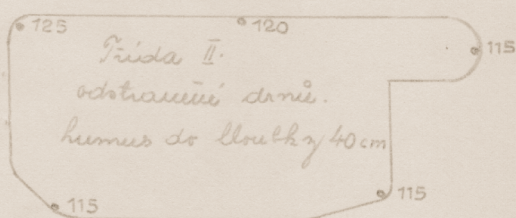 125
120
115
Třída II.
odstranění drnů.
humus do hloubky 40 cm
115
115